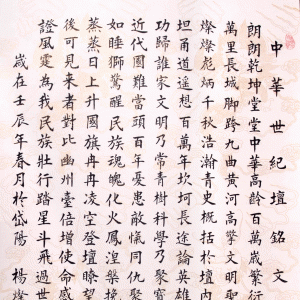 中華世紀壇銘文
朗朗乾坤堂堂中華高齡百萬歲繁衍
萬里長城腳跨九曲黃河高擎文明聖
燦燦彪炳千秋浩瀚青史概括於壇
坦甬道遙想百萬年坎坷長途論英雄
功歸誰家文明乃常青樹科學乃聚寶
近代國難當頭百年憂患敵愾同仇聚
如睡獅驚醒民族魂魄化火鳳涅槃挽
蒸蒸日上升國旗冉冉凌空登壇瞭望
後可見來者對比幽州臺倍增使命感
證風雲為我民族壯行踏星斗飛過世
歲在壬辰年春月於岱陽 楊